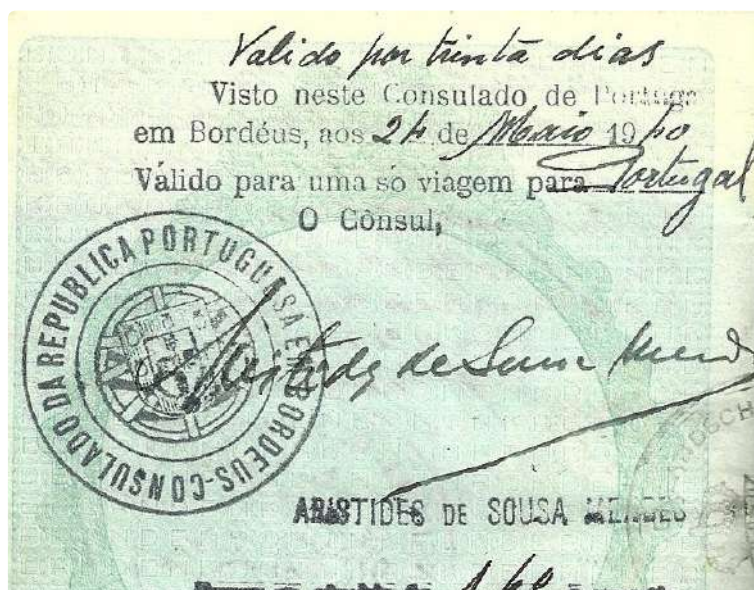 Valido por trinta dias
Visto neste Consulado de Portuga
em Bordéus, aos 24 de Maio 1940
Válido para uma só viagem para Portugal
O Cônsul,
CONSULADO DA REPUBLICA PORTUGUESA EM BORDEUS-
Aristides de Sousa Mend
ARISTIDES DE SOUSA MENDES